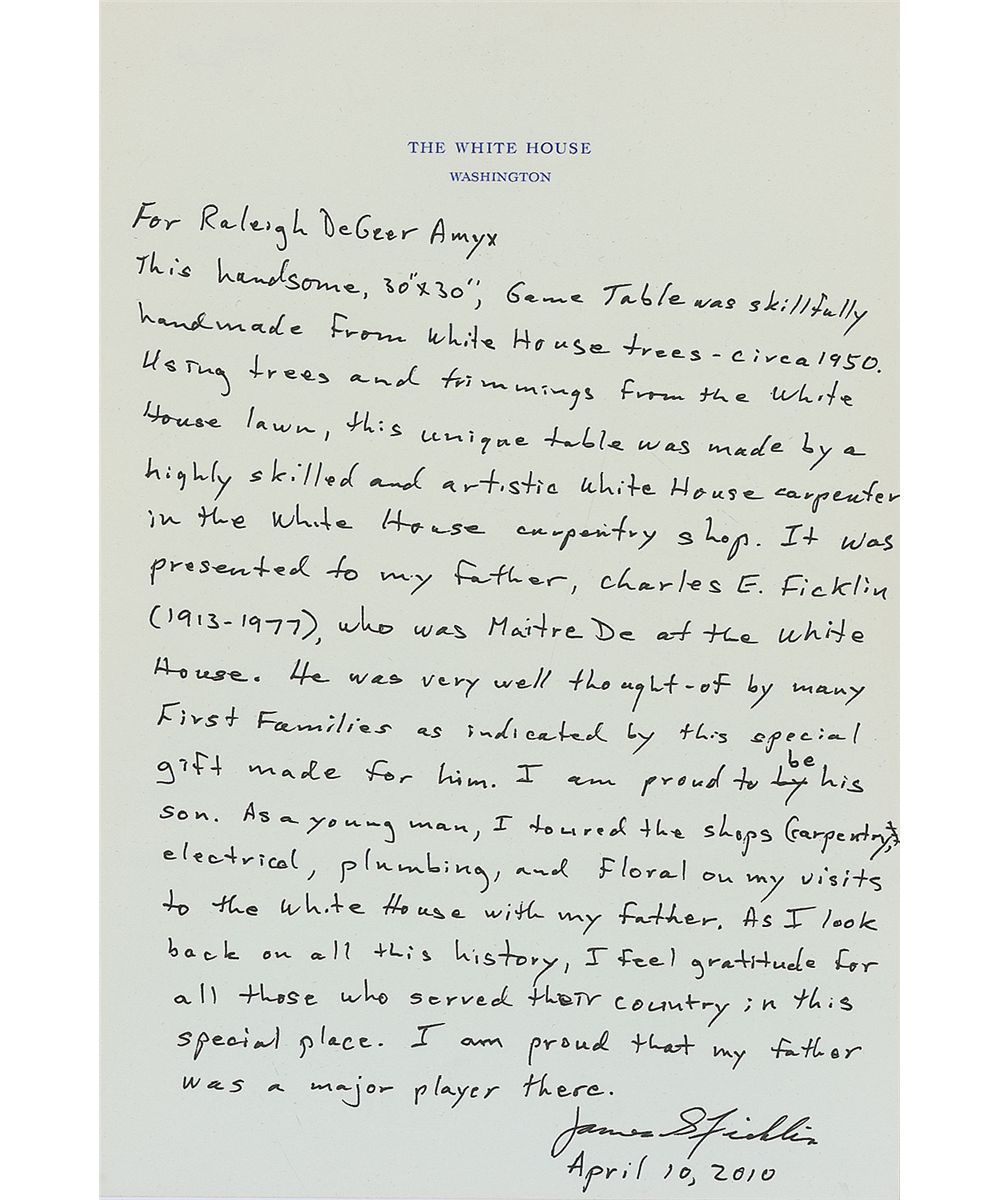 THE WHITE HOUSE
WASHINGTON
For Raleigh DeGeer Amyx
This handsome, 30"x30", Game Table was skillfully
handmade From White House trees - circa 1950.
Using trees and trimmings from the White
House lawn, this unique table was made by a
highly skilled and artistic White House carpenter
in the White House carpentry shop. It was
presented to my father, Charles E. Ficklin
(1913-1977), who was Maitre De at the White
House. He was very well thought-of by many
First Families as indicated by this special
gift made for him. I am proud to be his
son. As a young man, I toured the shops (carpentry,
electrical, plumbing, and Floral on my visits
to the White House with my father. As I look
back on all this history, I feel gratitude for
all those who served their country in this
special place. I am proud that my father
was a major player there.
James S Ficklin
April 10, 2010